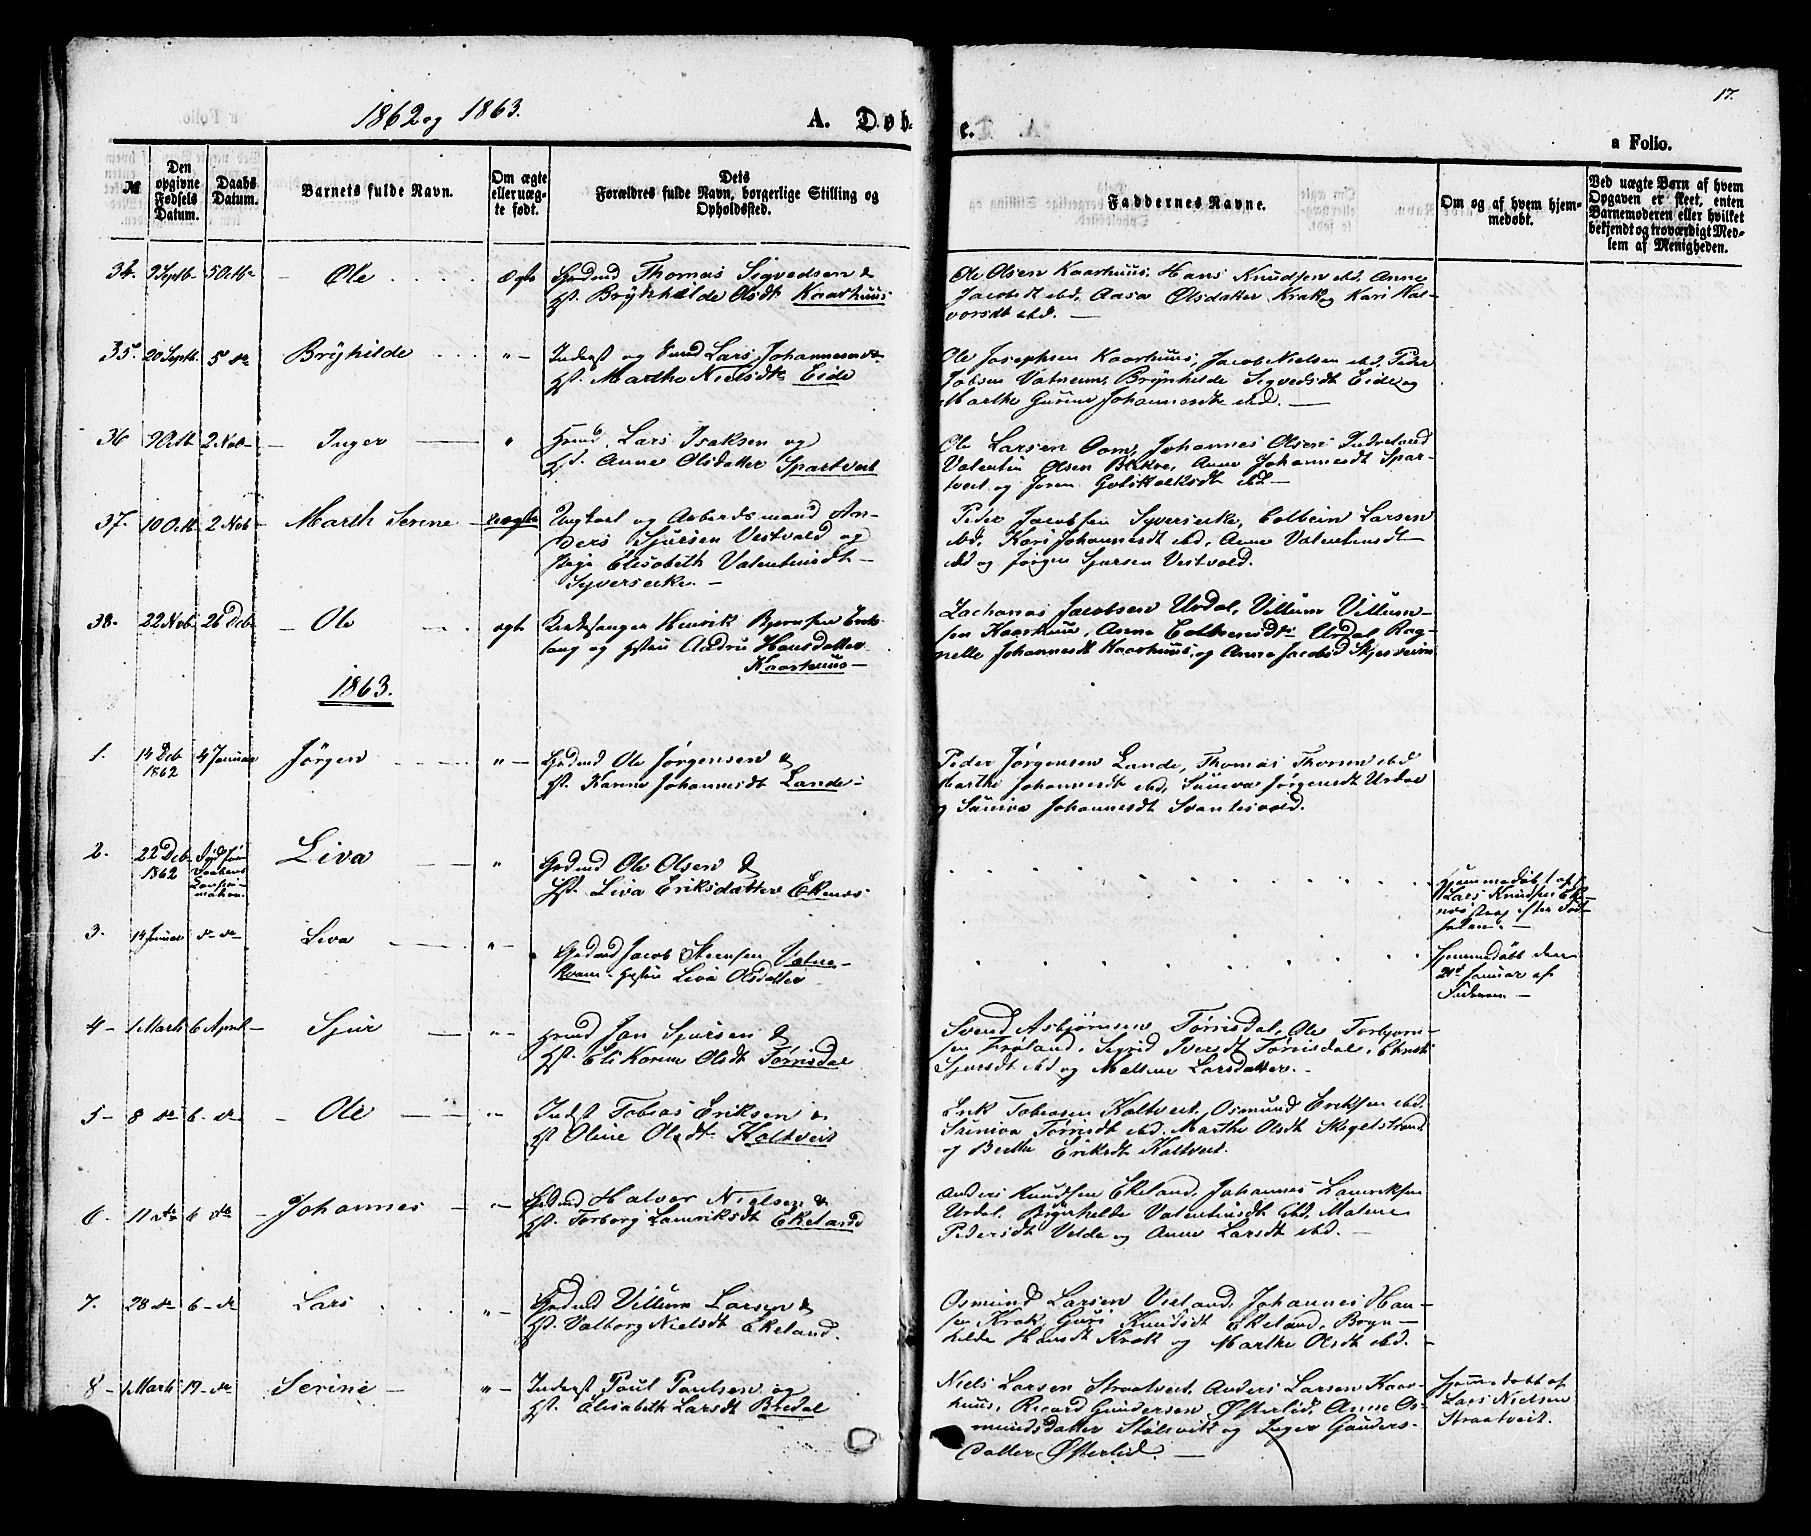 17.
1862 og 1863.
A. Døb-
e.
a Folio.
№
Den opgivne Fødsels Datum.
Daabs Datum.
Barnets fulde Navn.
Om ægte eller uægte født.
Dets Forældres fulde Navn, borgerlige Stilling og Opholdssted.
Faddernes Navne.
Om og af hvem hjemmedøbt.
Ved uægte Børn af hvem Opgaven er skeet, enten Barnemoderen eller hvilket bekjendt og troværdigt Medlem af Menigheden.
34. 9 Septb. 5 Octbr Ole Ægte Gbdmd Thomas Sigvedsen &
Hst. Brÿnhilde Olsdt Kaarhuus
Ole Olsen Kaarhuus, Hans Knudsen ibd. Anne
Jacobsdt ibd, Aasa Olsdatter Krakog Kari Hal-
vorsdt ibd. —
35. 20 Septb. 5 dr Brÿhilde " — Inderst og Lars Johannesen &
Hst. Marthe Nielsdt. Eide
Ole Josephsen Kaarhuus, Jacob Nielsen ibd, Peder
Jobsen Vatnem, Brÿnhilde Sigvedsdt Eide og
Marthe Gurine Johannesdt ibd. —
36 9 Octb 2 Nob — Inger " Gbmd. Lars Isaksen og
Hst. Anne Olsdatter Spartveit
Ole Larsen Oom, Johannes Olsen
Valentin Olsen Anne Johannesdt Spar-
tveit og Joren ibd —
37. 10 Octb 2 Nob Marth Serine — uægte Ungkarl og Arbeidsmand An-
ders Sjursen Vestvold og
Pige Elisabeth Valentinsdt
Syverserke. —
Peder Jacobsen Syverserke, Colbein Larsen
ibd, Kari Johannesdt ibd, Anne Valentinsdt
ibd og Jørgen Sjursen Vestvold.
38. 22 Nob 26 Deb — Ole ægte Kirkesanger Henrik Bjørnsen
og Hstru Andru Hansdatter
Kaarhuus —
Zacharias Jacobsen Urdal, Villum Villum-
sen Kaarhuus, Anne Colbensdt Urdal Rag-
nelle Johannesdt Kaarhuus, og Anne Jacobsd
1863.
1. 14 Deb 1862 4 Januar Jörgen " — Gbdmd Ole Jørgensen &
Hst. Karen Johannesdt Lande —
Peder Jørgensen Lande, Thomas Thorsen ibd
Marthe Johannesdt ibd, Suneva Jørgensdt Urdal
og Suniva Johannesdt Svantesvold.
2. 22 Deb 1862 Liva " Gbdmd Ole Olsen &
Hst. Liva Eriksdatter Ekenes
Hjemmedöbt af
Lars Knudsen Eke-
nes strax efter Föd-
selen. —
3. 14 Januar dr dr Liva " — Gbdmd Jacob Steensen Vatne-
kvam. Hstru Liva Olsdatter
Hjemmedöbt den
21de Januar af
Faderen. —
4 — 1 Marts 6 April — Sjur " — Gbmd Jan Sjursen &
Hst. Eli Karine Olsdt Tørrisdal
Svend Asbjørnsen Tørrisdal, Ole Torbjørn-
sen Frøland, Sigrid Iversdt Tørrisdal,
Sjursdt ibd og Malene Larsdatter. —
5 — 8 dr 6 — dr — Ole " — Inderst Tobias Eriksen &
Hst Oline Olsdt Holtveit
Erik Tobiasen Holtveit, Osmund Eriksen ibd.
Suniva Tørrisdt ibd. Marthe Olsdt Skigelstrand
og Berthe Eriksdt Holtveit.
6. 11 dr 6 dr — Johannes — " — Gbdmd Halvor Nielsen &
Hst. Torborg Lauriksdt Ekeland
Anders Knudsen Ekeland, Johannes Lauriksen
Urdal. Brÿnhilde Valentinsdt ibd. Malene
Pedersdt Velde og Anne Larsdt ibd. —
7. 28 dr 6 — dr Lars " — Gbdmd Villum Larsen &
Hst. Valborg Nielsdt Ekeland.
Osmund Larsen Vieland, Johannes Han-
sen Krak, Guri Knudsdt Ekeland, Bryn-
hilde Hansdt Krak og Marthe Olsdt ibd. —
8 — 1 Marts 17 — dr Serine — " — Inderst, Poul Poulsen og
Hst. Elisabeth Larsdt Bredal
Niels Larsen Straatveit, Anders Larsen Kaar-
huus, Ricard Gundersen Østerlid, Anne Os-
mundsdatter Stølsvik og Inger Gunders-
datter Østerlid. —
Hjemmedøbt af
Lars Nielsen
Straatveit.